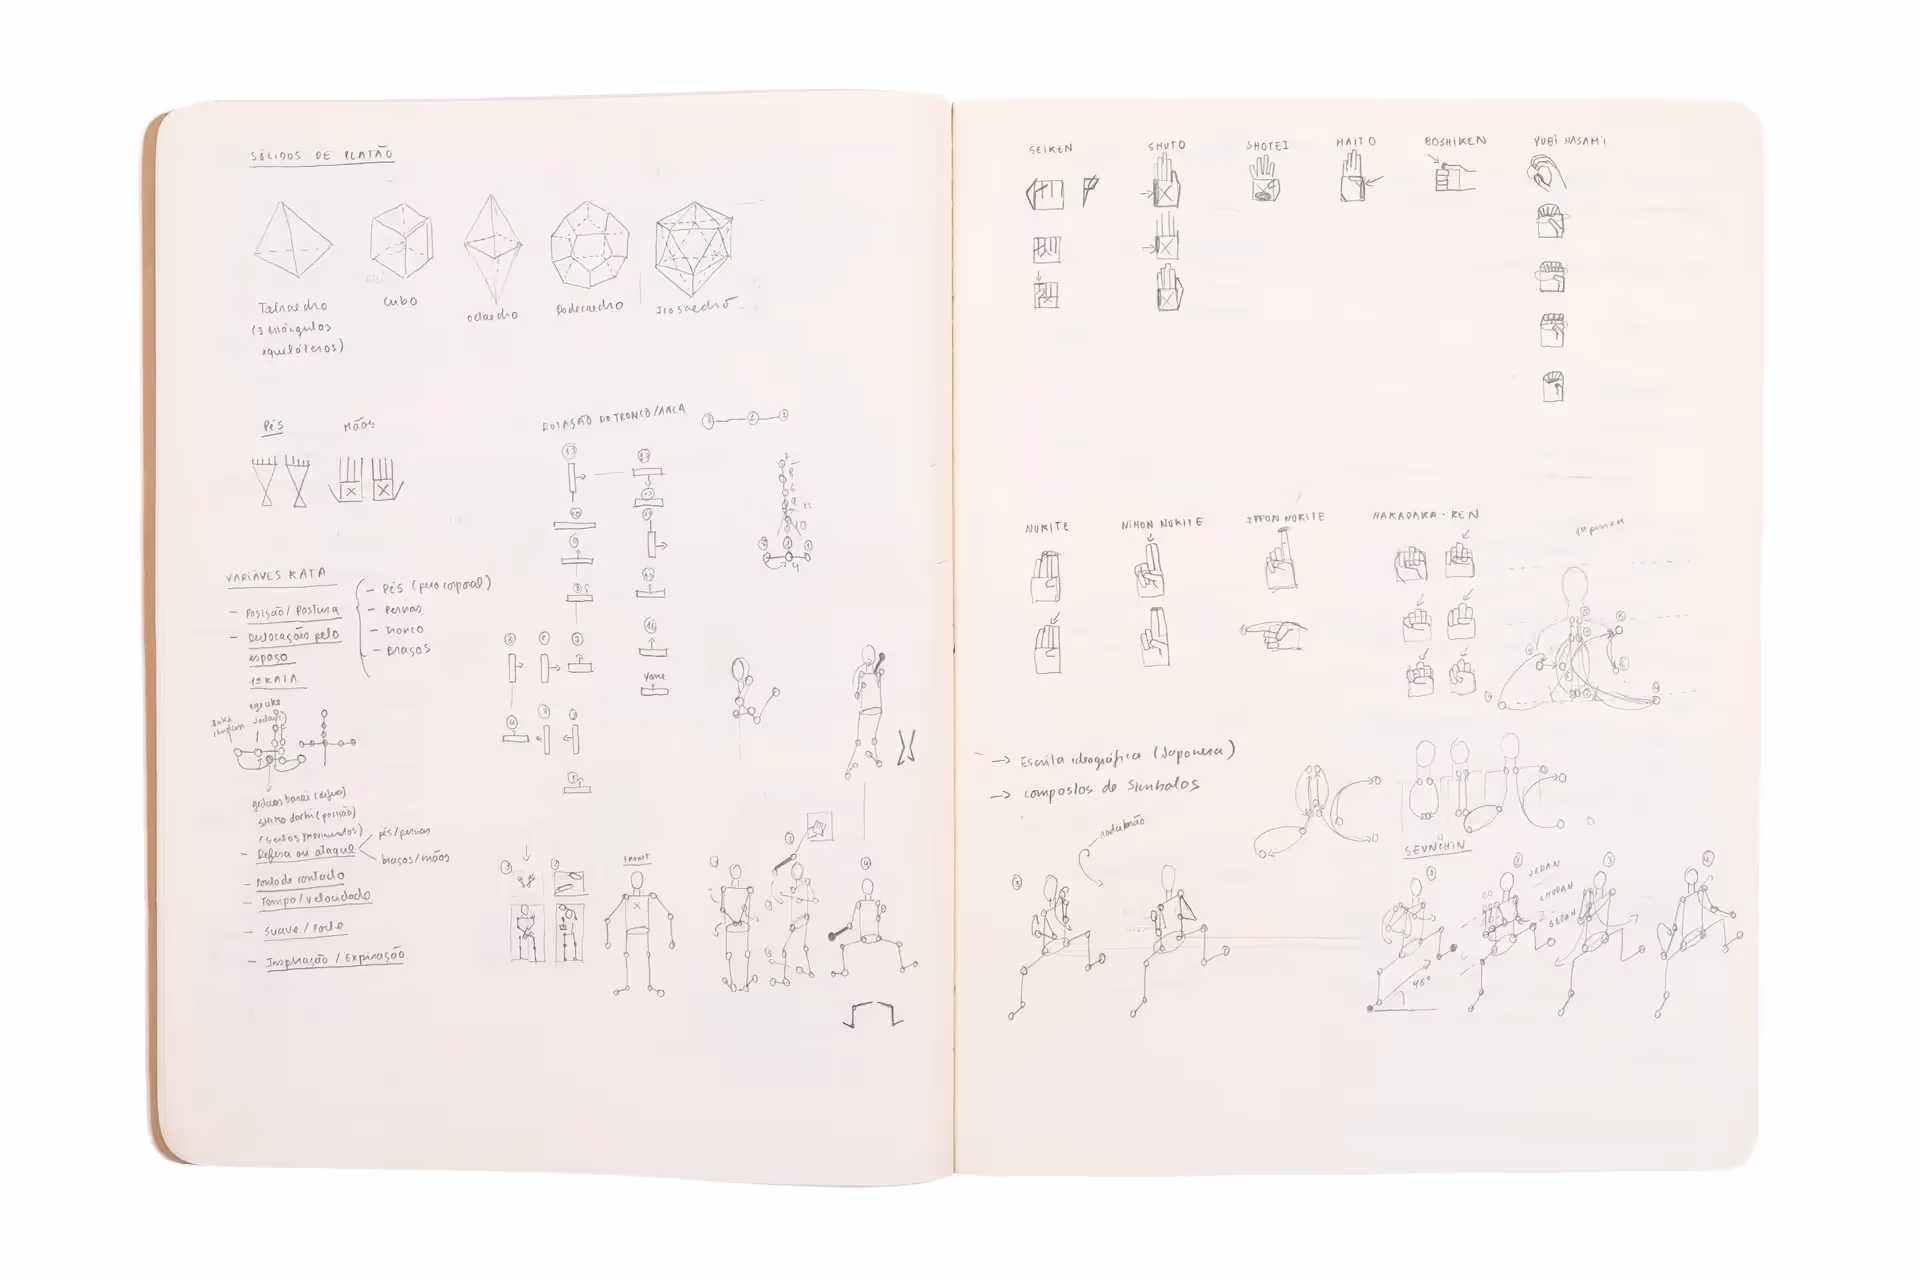 SÓLIDOS DE PLATÃO
Tetraedro
(3 triângulos
equiláteros)
Cubo
octaedro
Dodecaedro
Icosaedro
PÉS
MÃOS
ROTAÇÃO DO TRONCO/ANCA
VARIÁVES KATA
- Posição / Postura
- Deslocações pelo
espaço
- PÉS (peso corporal)
- Pernas
- Tronco
- Braços
1º KATA
age uke
jodan
gedan barai (defesa)
shiko dachi (posição)
- Defesa ou ataque
pés/pernas
braços/mãos
- Ponto de contado
- Tempo / velocidade
- Suave / Forte
- Inspiração / Expiração
Yame
FRONT
SEIKEN
SHUTO
SHOTEI
HAITO
BOSHIKEN
YUBI HASAMI
NUKITE
NIHON NUKITE
IPPON NUKITE
NAKADAKA - KEN
→ Escrita ideográfica (Japonesa)
→ compostos de símbolos
SEUNCHIN
JODAN
CHUDAN
GEDAN
45º